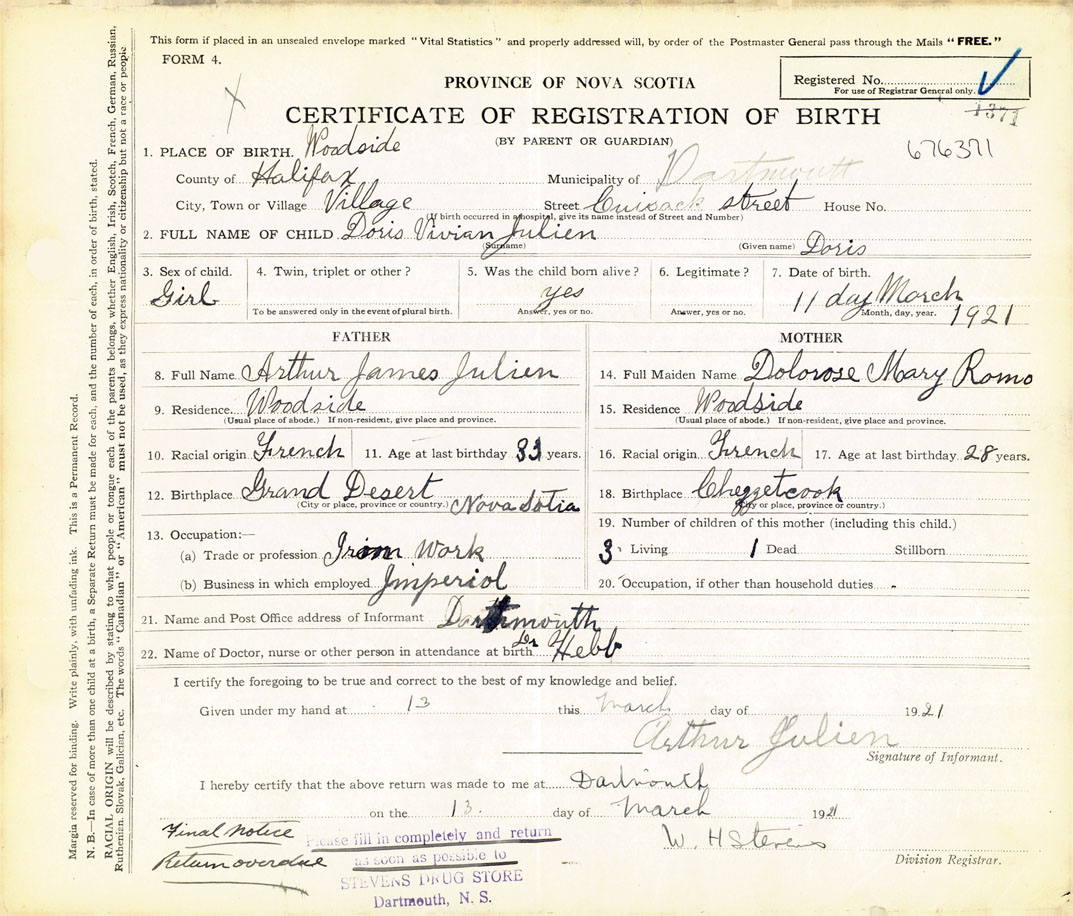 This form if placed in an unsealed envelope marked "Vital Statistics" and properly addressed will, by order of the Postmaster General pass through the Mails "FREE."
FORM 4.
PROVINCE OF NOVA SCOTIA
Registered No.
For use of Registrar General only.
CERTIFICATE OF REGISTRATION OF BIRTH
1371
(BY PARENT OR GUARDIAN)
676371
1. PLACE OF BIRTH. Woodside
County of Halifax Municipality of Dartmouth
City, Town or Village Village Street Cuisack street House No.
(If birth occurred in a hospital, give its name instead of Street and Number)
2. FULL NAME OF CHILD Doris Vivian Julien (Given name) Doris
(Surname)
3. Sex of child. 4. Twin, triplet or other? 5. Was the child born alive? 6. Legitimate? 7. Date of birth.
Girl yes 11 day March
To be answered only in the event of plural birth. Answer, yes or no. Answer, yes or no. Month, day, year. 1921
FATHER
8. Full Name Arthur James Julien
9. Residence Woodside
(Usual place of abode.) If non-resident, give place and province.
10. Racial origin French 11. Age at last birthday 33 years.
12. Birthplace Grand Desert
(City or place, province or country.) Nova Sotia
13. Occupation:—
(a) Trade or profession Iron Work
(b) Business in which employed Imperiol
MOTHER
14. Full Maiden Name Dolorose Mary Romo
15. Residence Woodside
(Usual place of abode.) If non-resident, give place and province.
16. Racial origin French 17. Age at last birthday 28 years.
18. Birthplace Chezzetcook
(City or place, province or country.)
19. Number of children of this mother (including this child.)
3 Living 1 Dead Stillborn
20. Occupation, if other than household duties -
21. Name and Post Office address of Informant Dartmouth
22. Name of Doctor, nurse or other person in attendance at birth Dr Hebb
I certify the foregoing to be true and correct to the best of my knowledge and belief.
Given under my hand at 13 this March day of 1921
Arthur Julien
Signature of Informant.
I hereby certify that the above return was made to me at Dartmouth
on the 13. day of March 1921
W. H Stevens
Division Registrar.
Final Notice
Return overdue
Please fill in completely and return
as soon as possible to
STEVENS DRUG STORE
Dartmouth, N. S.
Margin reserved for binding. Write plainly, with unfading ink. This is a Permanent Record.
N. B.—In case of more than one child at a birth, a Separate Return must be made for each, and the number of each, in order of birth, stated.
RACIAL ORIGIN will be described by stating to what people or tongue each of the parents belongs, whether English, Irish, Scotch, French, German, Russian,
Ruthenian, Slovak, Galician, etc. The words "Canadian" or "American" must not be used, as they express nationality or citizenship but not a race or people